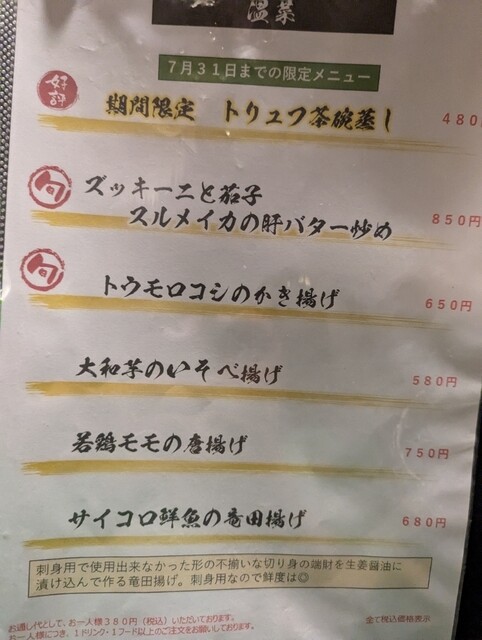 温菜
7月31日までの限定メニュー
好評
期間限定 トリュフ茶碗蒸し 480
旬
ズッキーニと茄子
スルメイカの肝バター炒め 850円
旬
トウモロコシのかき揚げ 650円
大和芋のいそべ揚げ 580円
若鶏モモの唐揚げ 750円
サイコロ鮮魚の竜田揚げ 680円
刺身用で使用出来なかった形の不揃いな切り身の端財を生姜醤油に
漬け込んで作る竜田揚げ。刺身用なので鮮度は◎
お通し代として、お一人様380円(税込)いただいております。
お一人様につき、1ドリンク・1フード以上のご注文をお願いしております。
全て税込価格表示